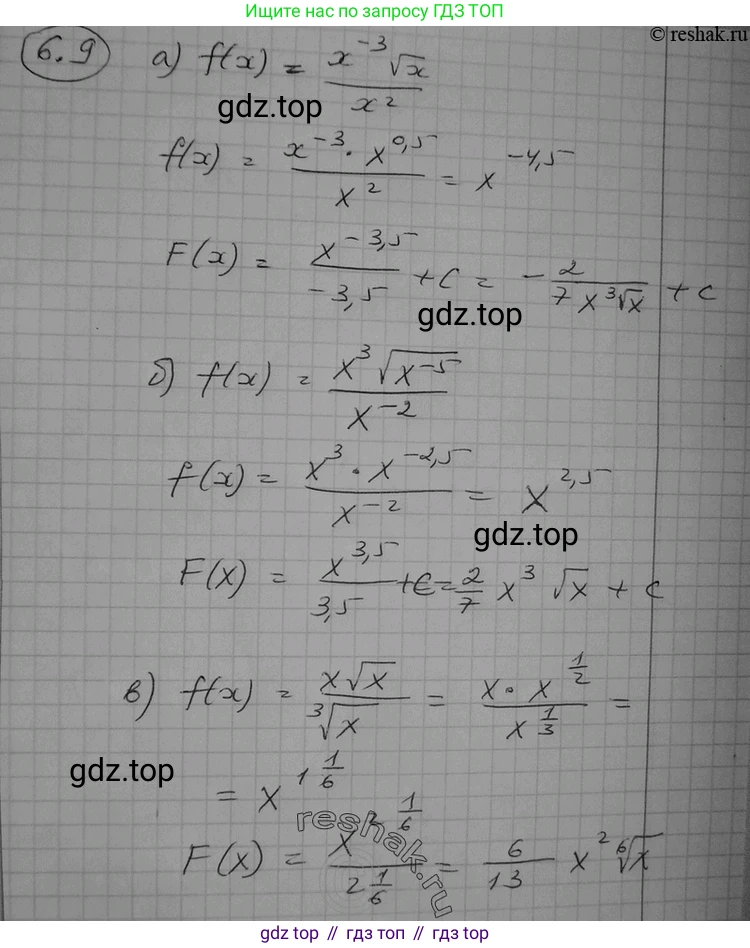 Ищите нас по запросу ГДЗ ТОП
© reshak.ru
6.9 а) f(x) = x⁻³√x / x²
gdz.top
f(x) = x⁻³ · x^0,5 / x² = x^-4,5
F(x) = x^-3,5 / -3,5 + C = - 2 / 7x³√x + C
gdz.top
б) f(x) = x³√x⁻⁵ / x⁻²
f(x) = x³ · x^-2,5 / x⁻² = x^2,5
gdz.top
F(x) = x^3,5 / 3,5 + C = 2/7 x³ √x + C
в) f(x) = x√x / ³√x = x · x^1/2 / x^1/3 =
gdz.top
= x^1 1/6
reshak.ru
F(x) = x^2 1/6 / 2 1/6 = 6/13 x² ⁶√x
gdz.top // гдз.топ // гдз топ